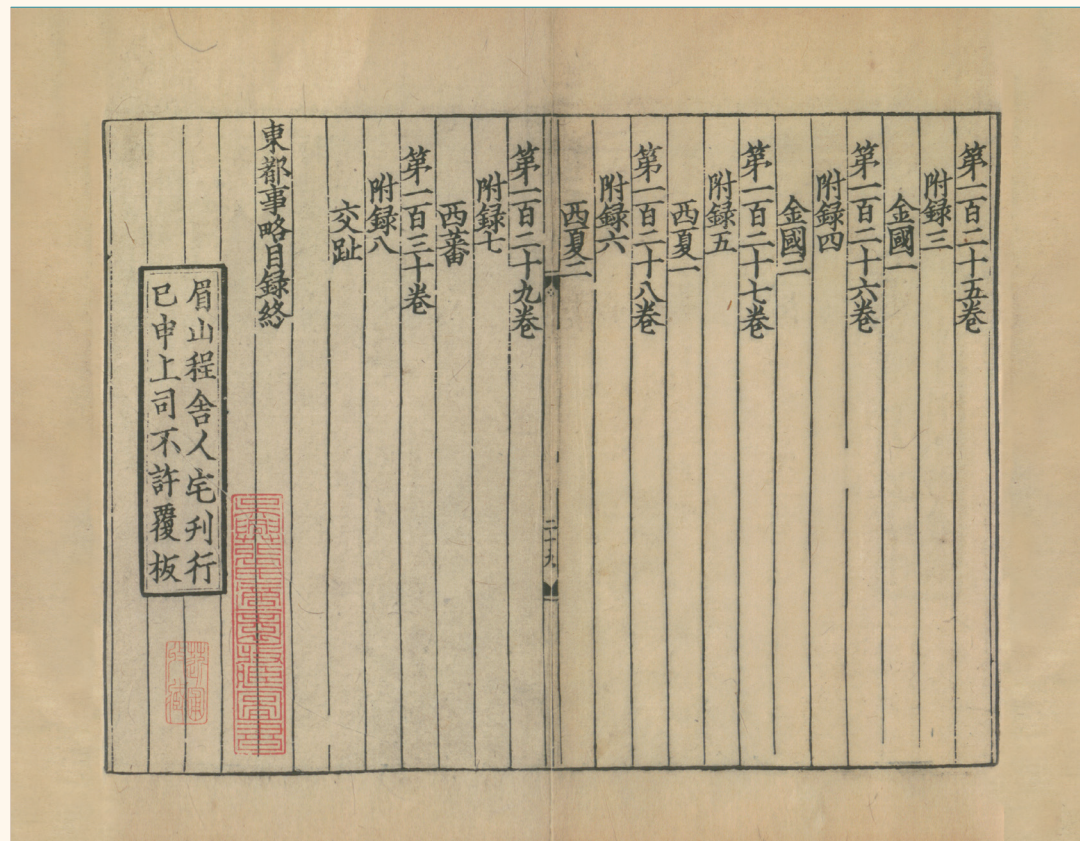 第一百二十五卷
附録三
金國一
第一百二十六卷
附録四
金國二
第一百二十七卷
附録五
西夏一
第一百二十八卷
附録六
西夏二
二十九
第一百二十九卷
附録七
西蕃
第一百三十卷
附録八
交趾
東都事略目録終
眉山程舎人宅刊行
已申上司不許覆板